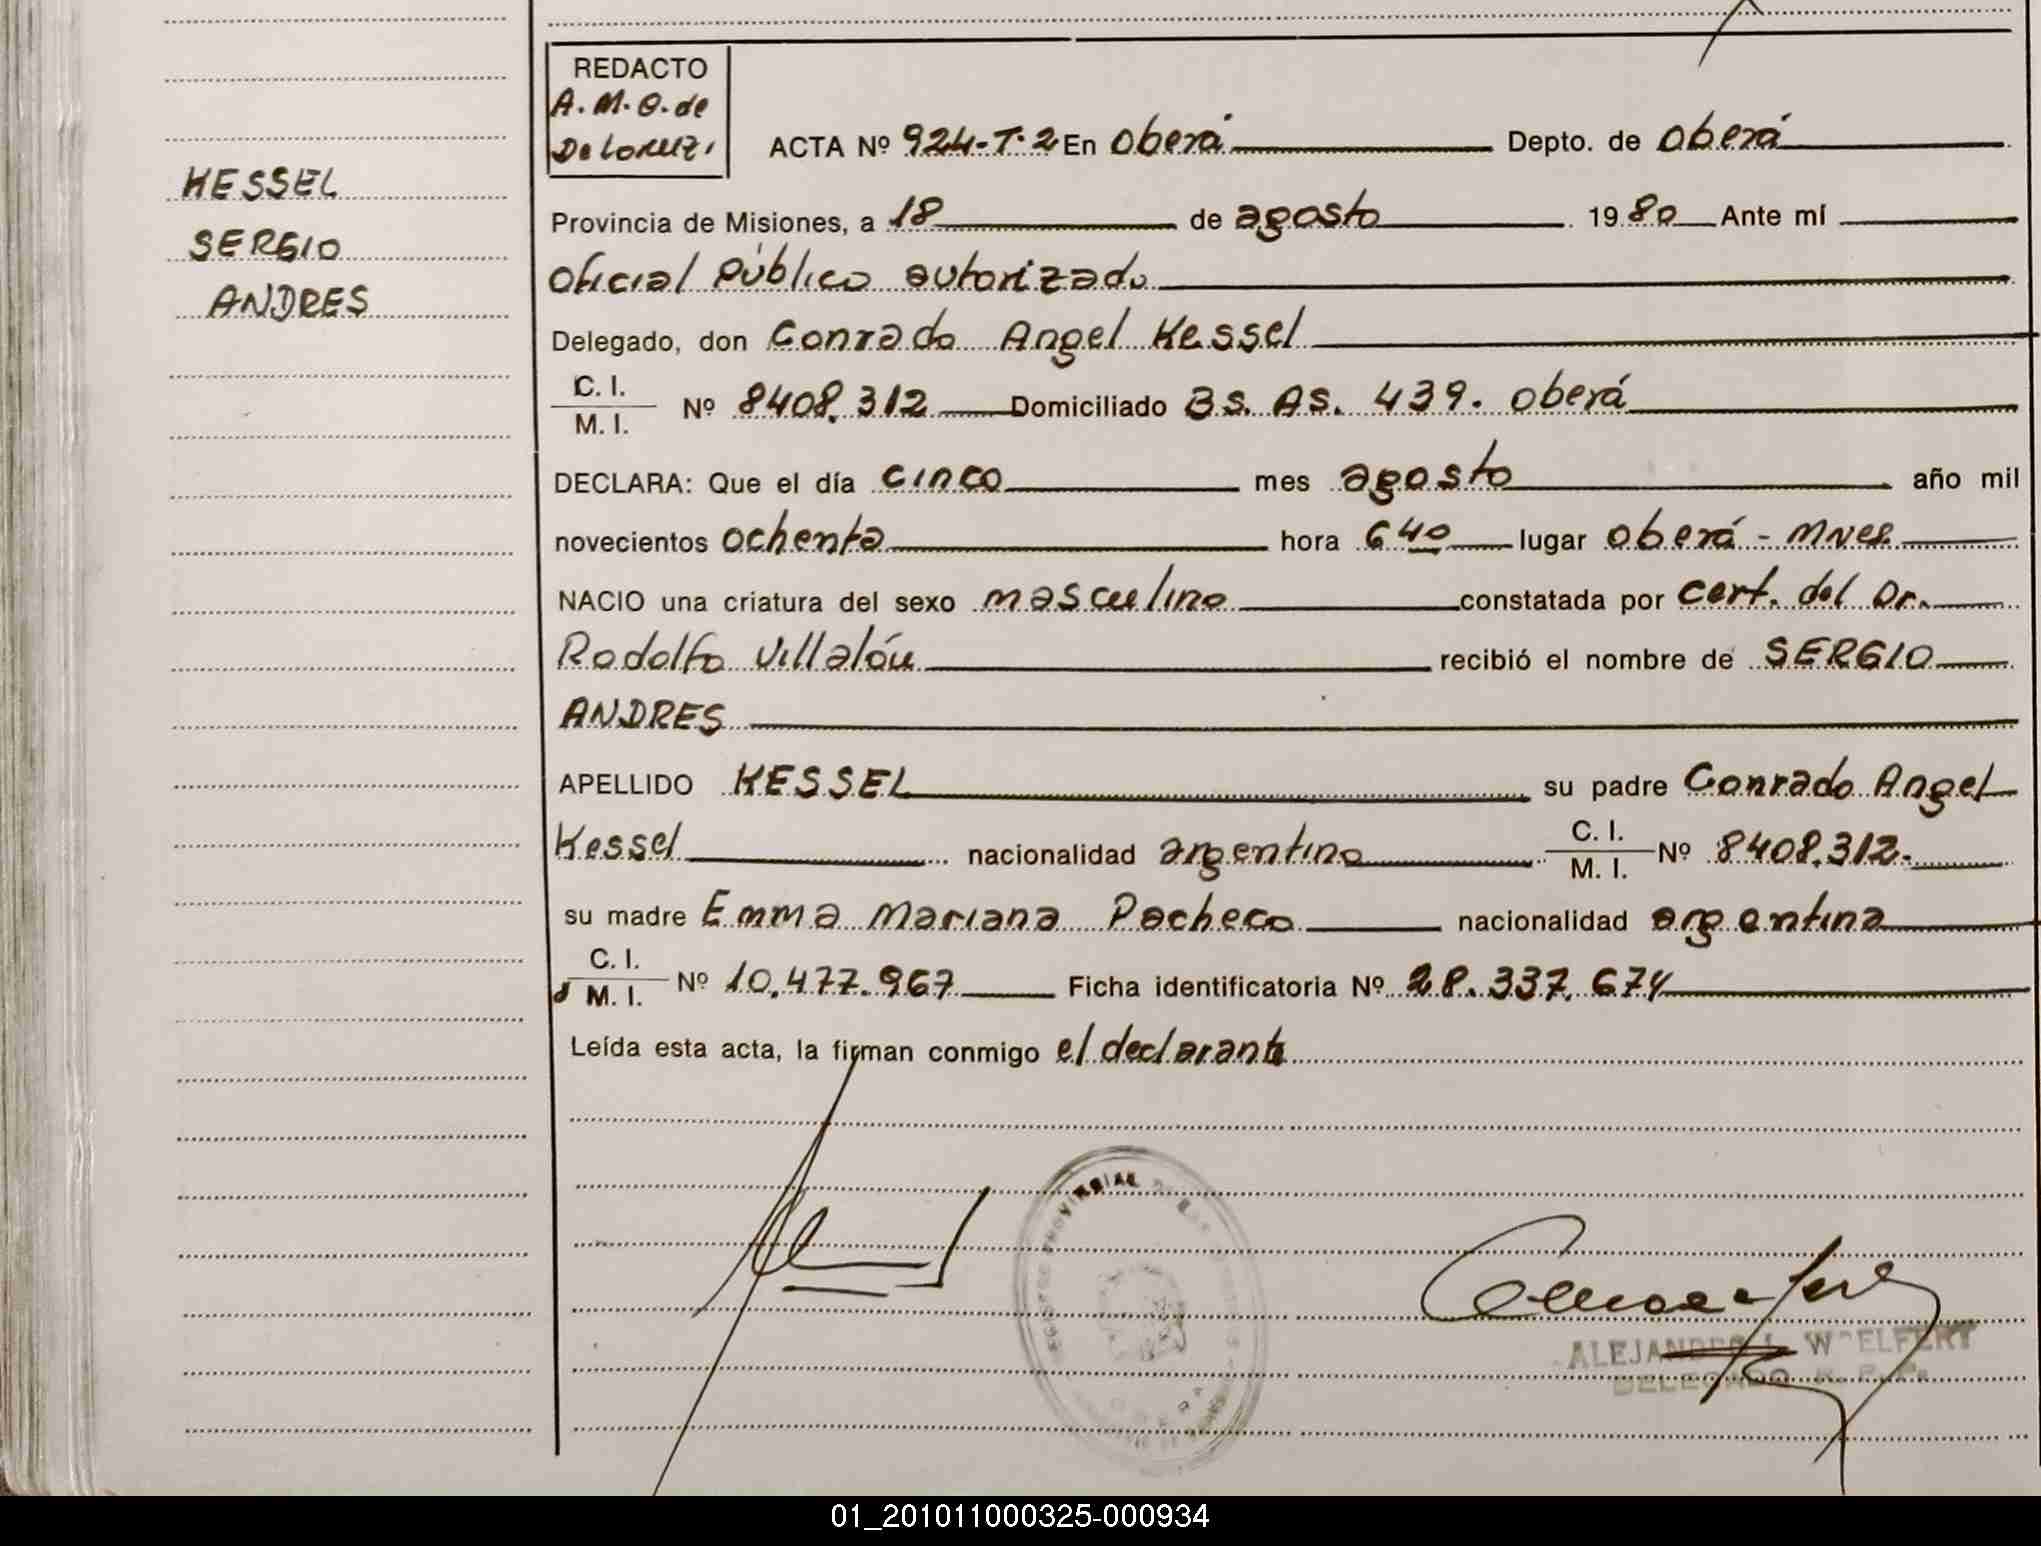 KESSEL
SERGIO
ANDRES
REDACTO
A. M. O. de
De Lorenzi
ACTA Nº 924-T-2 En Oberá Depto. de Oberá
Provincia de Misiones, a 18 de agosto 1980 Ante mí
Oficial Público autorizado
Delegado, don Conrado Angel Kessel
C. I.
M. I. Nº 8408.312 Domiciliado Bs. As. 439. Oberá
DECLARA: Que el día cinco mes agosto año mil
novecientos ochenta hora 6 40 lugar Oberá - Mnes.
NACIO una criatura del sexo masculino constatada por cert. del Dr.
Rodolfo Villalón recibió el nombre de SERGIO
ANDRES
APELLIDO KESSEL su padre Conrado Angel
Kessel nacionalidad argentino C. I. M. I. Nº 8408.312.
su madre Emma Mariana Pacheco nacionalidad argentina
C. I.
M. I. Nº 10.477.967 Ficha identificatoria Nº 28.337.674
Leída esta acta, la firman conmigo el declarante
DELEGADO R. P. P.
01_201011000325-000934